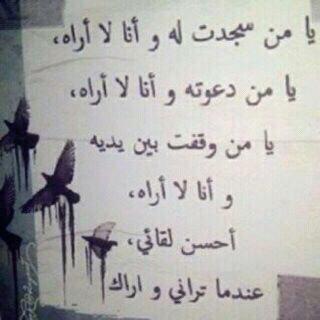 يا من سجدت له و أنا لا أراه،
يا من دعوته و أنا لا أراه،
يا من وقفت بين يديه
و أنا لا أراه،
أحسن لقائي،
عندما تراني و اراك